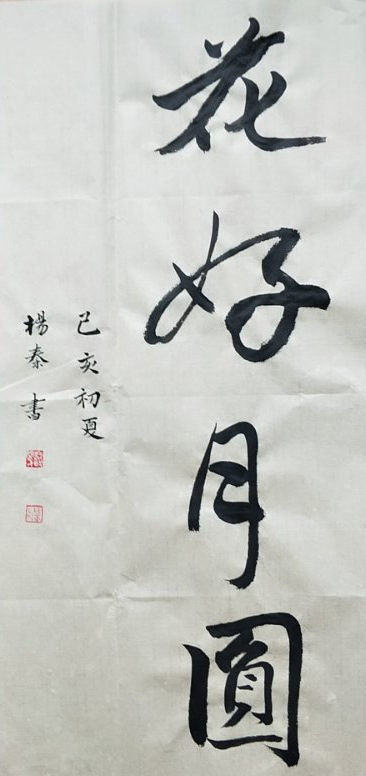 花好月圓
己亥初夏
楊泰書